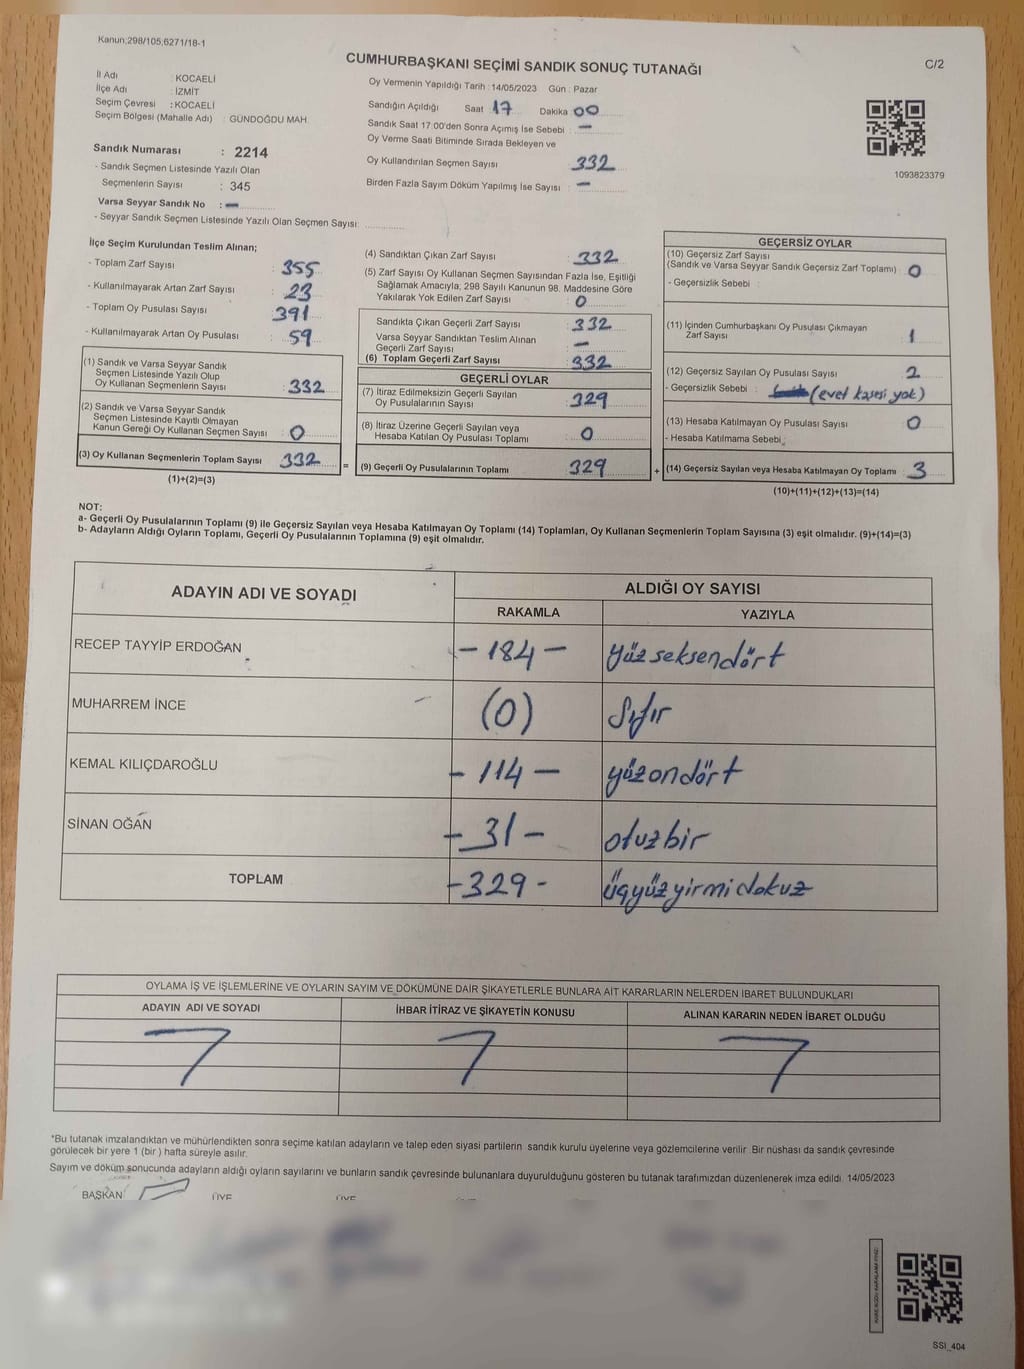 Kanun;298/105;6271/18-1
CUMHURBAŞKANI SEÇİMİ SANDIK SONUÇ TUTANAĞI
C/2
İl Adı : KOCAELİ
İlçe Adı : İZMİT
Seçim Çevresi : KOCAELİ
Seçim Bölgesi (Mahalle Adı) : GÜNDOĞDU MAH.
Sandık Numarası : 2214
- Sandık Seçmen Listesinde Yazılı Olan
Seçmenlerin Sayısı : 345
Varsa Seyyar Sandık No : –
- Seyyar Sandık Seçmen Listesinde Yazılı Olan Seçmen Sayısı:
Oy Vermenin Yapıldığı Tarih : 14/05/2023 Gün : Pazar
Sandığın Açıldığı Saat 17 Dakika 00
Sandık Saat 17:00'den Sonra Açımış İse Sebebi : –
Oy Verme Saati Bitiminde Sırada Bekleyen ve
Oy Kullandırılan Seçmen Sayısı 332
Birden Fazla Sayım Döküm Yapılmış İse Sayısı : –
1093823379
İlçe Seçim Kurulundan Teslim Alınan;
- Toplam Zarf Sayısı : 355
- Kullanılmayarak Artan Zarf Sayısı : 23
- Toplam Oy Pusulası Sayısı : 391
- Kullanılmayarak Artan Oy Pusulası : 59
(1) Sandık ve Varsa Seyyar Sandık
Seçmen Listesinde Yazılı Olup
Oy Kullanan Seçmenlerin Sayısı : 332
(2) Sandık ve Varsa Seyyar Sandık
Seçmen Listesinde Kayıtlı Olmayan
Kanun Gereği Oy Kullanan Seçmen Sayısı : 0
(3) Oy Kullanan Seçmenlerin Toplam Sayısı 332
(1)+(2)=(3)
=
(4) Sandıktan Çıkan Zarf Sayısı : 332
(5) Zarf Sayısı Oy Kullanan Seçmen Sayısından Fazla İse, Eşitliği
Sağlamak Amacıyla, 298 Sayılı Kanunun 98. Maddesine Göre
Yakılarak Yok Edilen Zarf Sayısı : 0
Sandıkta Çıkan Geçerli Zarf Sayısı : 332
Varsa Seyyar Sandıktan Teslim Alınan
Geçerli Zarf Sayısı : –
(6) Toplam Geçerli Zarf Sayısı : 332
GEÇERLİ OYLAR
(7) İtiraz Edilmeksizin Geçerli Sayılan
Oy Pusulalarının Sayısı : 329
(8) İtiraz Üzerine Geçerli Sayılan veya
Hesaba Katılan Oy Pusulası Toplamı : 0
(9) Geçerli Oy Pusulalarının Toplamı 329
+
GEÇERSİZ OYLAR
(10) Geçersiz Zarf Sayısı
(Sandık ve Varsa Seyyar Sandık Geçersiz Zarf Toplamı) : 0
- Geçersizlik Sebebi :
(11) İçinden Cumhurbaşkanı Oy Pusulası Çıkmayan
Zarf Sayısı : 1
(12) Geçersiz Sayılan Oy Pusulası Sayısı : 2
- Geçersizlik Sebebi : (evet kaşesi yok)
(13) Hesaba Katılmayan Oy Pusulası Sayısı : 0
- Hesaba Katılmama Sebebi :
(14) Geçersiz Sayılan veya Hesaba Katılmayan Oy Toplamı : 3
(10)+(11)+(12)+(13)=(14)
NOT:
a- Geçerli Oy Pusulalarının Toplamı (9) ile Geçersiz Sayılan veya Hesaba Katılmayan Oy Toplamı (14) Toplamları, Oy Kullanan Seçmenlerin Toplam Sayısına (3) eşit olmalıdır. (9)+(14)=(3)
b- Adayların Aldığı Oyların Toplamı, Geçerli Oy Pusulalarının Toplamına (9) eşit olmalıdır.
ADAYIN ADI VE SOYADI
ALDIĞI OY SAYISI
RAKAMLA YAZIYLA
RECEP TAYYİP ERDOĞAN – 184 – yüz seksendört
MUHARREM İNCE (0) Sıfır
KEMAL KILIÇDAROĞLU – 114 – yüzondört
SİNAN OĞAN – 31 – otuzbir
TOPLAM – 329 - üçyüzyirmidokuz
OYLAMA İŞ VE İŞLEMLERİNE VE OYLARIN SAYIM VE DÖKÜMÜNE DAİR ŞİKAYETLERLE BUNLARA AİT KARARLARIN NELERDEN İBARET BULUNDUKLARI
ADAYIN ADI VE SOYADI İHBAR İTİRAZ VE ŞİKAYETİN KONUSU ALINAN KARARIN NEDEN İBARET OLDUĞU
*Bu tutanak imzalandıktan ve mühürlendikten sonra seçime katılan adayların ve talep eden siyasi partilerin sandık kurulu üyelerine veya gözlemcilerine verilir. Bir nüshası da sandık çevresinde
görülecek bir yere 1 (bir ) hafta süreyle asılır.
Sayım ve döküm sonucunda adayların aldığı oyların sayılarını ve bunların sandık çevresinde bulunanlara duyurulduğunu gösteren bu tutanak tarafımızdan düzenlenerek imza edildi. 14/05/2023
BAŞKAN ÜYE ÜYE
SSI_404